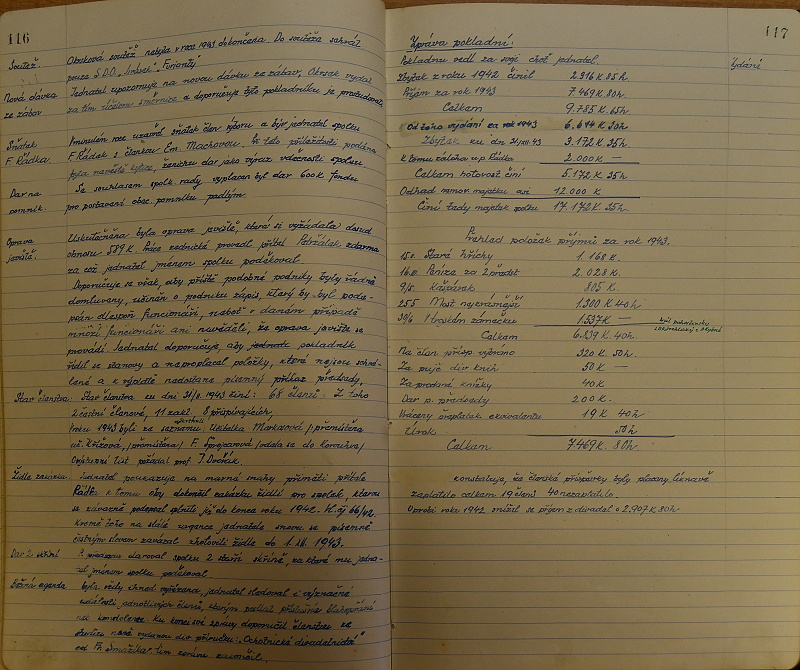 116
Soutěž. Okrsková soutěž nebyla v roce 1943 dokončena. Do soutěže sehrál
pouze S.D.O. „Furianty“
Nová dávka Jednatel upozornuje na novou dávku ze zábav. Okrsek vydal
ze zábav za tím účelem směrnice a doporučuje je pokladníku je prostudovati
Sňatek Minulém roce uzavřel sňatek člen výboru a býv. jednatel spolku
F. Řádka. F. Řádek s členkou Em. Machovou. Při této příležitosti podána
byla novomanželům dar jako výraz vděčnosti spolku
Dar na Se souhlasem spolk. rady vyplacen byl dar 600 K fondu
pomník. pro postavení obec. pomníku padlým.
Oprava Uskutečněna byla oprava jeviště, která si vyžádala dosud
jeviště. obnosu 589 K. Práce zednické provedl přítel Petržálek zdarma
za což jednatel jménem spolku poděkoval
Doporučuje se však, aby příště podobné podniky byly řádně
domluveny, učiněn o podniku zápis, který by byl pode-
psán alespoň funkcionáři, neboť v daném případě
mnozí funkcionáři ani nevěděli, že oprava jeviště se
provádí. Jednatel doporučuje, aby pokladník
řídil se stanovy a neproplácel položky, které nejsou schvá-
lené a k výplatě nedostane písemný příkaz předsedy,
Stav členstva: Stav členstva ku dni 31/12. 1943 činí: 68 členů. Z toho
2 čestní členové, 11 zakl. 8 přispívajících,
Roku 1943 byli ze seznamu Učitelka Markasová /přemístěna
uč. Křížová, /přemístěna/ F. Špýcarová /vdala se do Koraůve/
list požádal prof. J. Dvořák.
Židle Jednatel poukazuje na marné snahy přiměti přítele
Řádka k tomu aby dokončil zakázku židlí pro spolek, kterou
se závazně podepsal splniti již do konce roku 1942. H. čj 66/42.
kromě toho na stálé urgence jednatele znovu se písemně
čestným slovem zavázal zhotoviti židle do 1. XII. 1943.
Dar 2 skříní P. daroval spolku 2 starší skříně, za které mu jedna-
tel jménem spolku poděkoval
Běžná agenda byla vždy ihned vyřízena, jednatel sledoval i význačné
události jednotlivých členů, kterým podával příslušné blahopřání
neb kondolence. Ku konci své zprávy doporučil členstvu ke
nově vydanou div. příručku: „Ochotnické divadelnictví“
od Fr. Smažíka. tím zprávu zakončil.
117
Zpráva pokladní:
Pokladnu vedl za svoji choť jednatel. Vydání
Zbytek z roku 1942 činil 2.316 K 85 h
Příjem za rok 1943 7.469 K. 80 h.
Celkem 9.785 K. 65 h
Od toho vydání za rok 1943 6.614 K 30 h
Zbytek ku dni 31/XII 43 3.172 K. 35 h
K tomu záloha u p. Řádka 2.000 K —
Celkem hotovost činí 5.172 K. 35 h
Odhad movit. majetku asi 12.000 K.
Činí tedy majetek spolku 17.172 K. 35 h.
Přehled položek příjmů za rok 1943.
Staré hříchy 1.168 K.
Peníze za 2.028 K.
Kašpárek 805 K.
25.5 Most nejkrásnější 1.300 K 40 h
30/6 V horském zámečku 1.537 K —
Celkem 6.839 K. 40 h.
Na člen. přísp. vybráno 320 K. 50 h.
Za půjč. div. knih 50 K —
Za prodané knížky 40 K
Dar p. předsedy 200 K.
Vrácený přeplatek ekvivalentu 19 K 40 h
Úrok 50 h
Celkem 7469 K. 80 h.
konstatuje, že členské příspěvky byly placeny liknavě
zaplatilo celkem 19 členů 40 nezaplatilo
Oproti roku 1942 snížil se příjem z divadel o 2.907 K 80 h